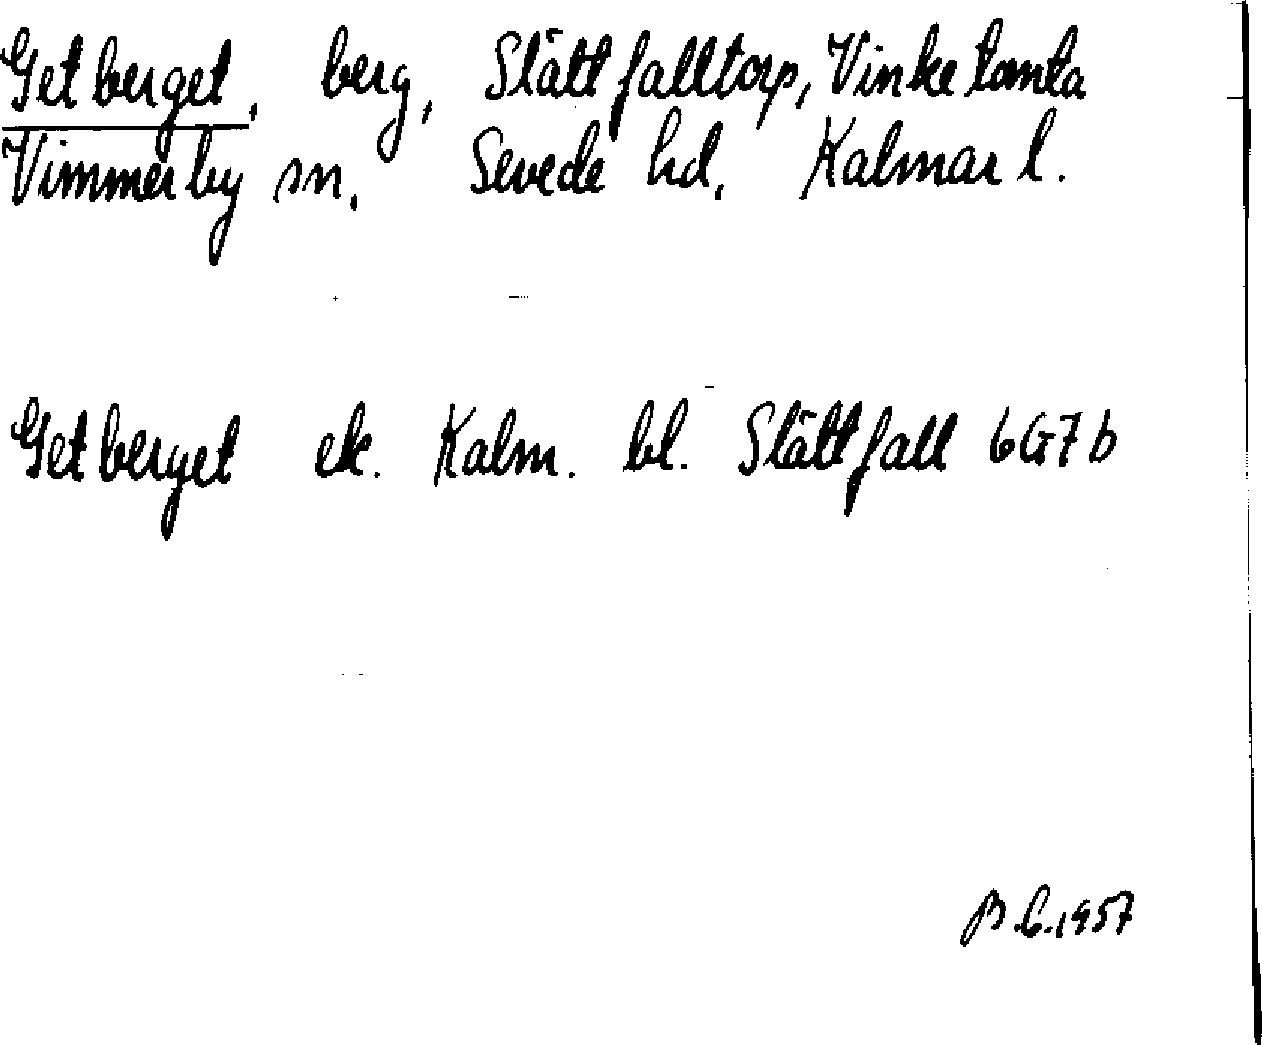 Getberget, berg, Slättfalltorp, Vinketomta
Vimmerby sn. Sevede hd. Kalmar l.
Getberget ek. Kalm. bl. Slättfall 6G7b
B.G.1957